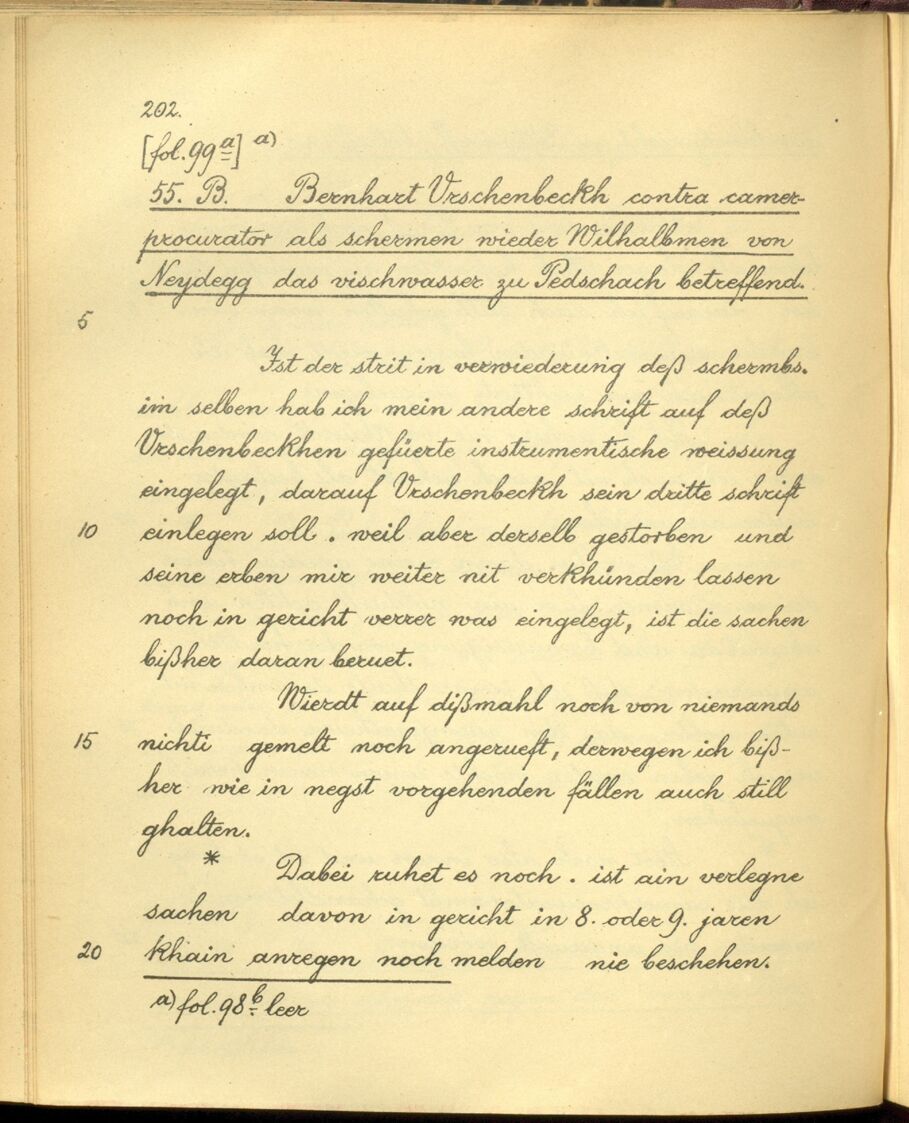 202.
[fol. 99 a] a)
55. B. Bernhart Urschenbeckh contra camer-
procurator als schermen wieder Wilhalbmen von
Neydegg das vischwasser zu Pedschach betreffend.
5
Ist der strit in verwiederung deß schermbs.
im selben hab ich mein andere schrift auf deß
Urschenbeckhen gefüerte instrumentische weissung
eingelegt, darauf Urschenbeckh sein dritte schrift
10 einlegen soll. weil aber derselb gestorben und
seine erben mir weiter nit verkhünden lassen
noch in gericht verrer was eingelegt, ist die sachen
bißher daran beruet.
Wierdt auf dißmahl noch von niemands
15 nichti gemelt noch angerueft, derwegen ich biß-
her wie in negst vorgehenden fällen auch still
ghalten.
* Dabei ruhet es noch. ist ain verlegne
sachen davon in gericht in 8. oder 9. jaren
20 khain anregen noch melden nie beschehen.
a) fol. 98 b leer